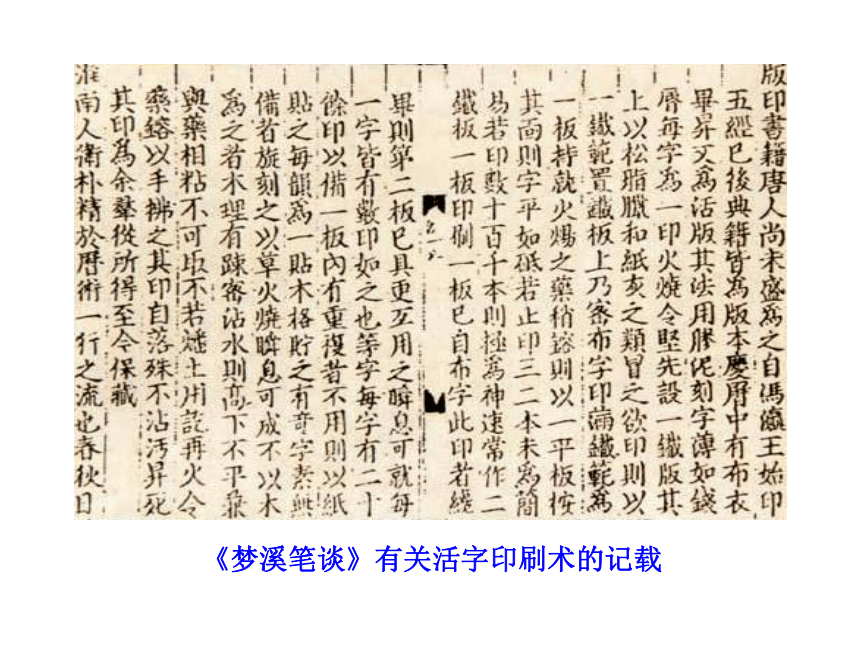 版印書籍唐人尚未盛爲之自馮瀛王始印
五經已後典籍皆爲版本慶曆中有布衣
畢昇又爲活版其法用膠泥刻字薄如錢
脣每字爲一印火燒令堅先設一鐵版其
上以松脂臘和紙灰之類冒之欲印則以
一鐵範置鐵板上乃密布字印滿鐵範爲
一板持就火煬之藥稍鎔則以一平板按
其面則字平如砥若止印三二本未爲簡
易若印數十百千本則極爲神速常作二
鐵板一板印刷一板已自布字此印者纔
畢則第二板已具更互用之瞬息可就每
一字皆有數印如之也等字每字有二十
餘印以備一板內有重複者不用則以紙
貼之每韻爲一貼木格貯之有奇字素無
備者旋刻之以草火燒瞬息可成不以木
爲之者木理有疎密沾水則高下不平兼
與藥相粘不可取不若燔土用訖再火令
藥鎔以手拂之其印自落殊不沾汚昇死
其印爲余羣從所得至今保藏
淮南人衛朴精於曆術一行之流也春秋日
《梦溪笔谈》有关活字印刷术的记载